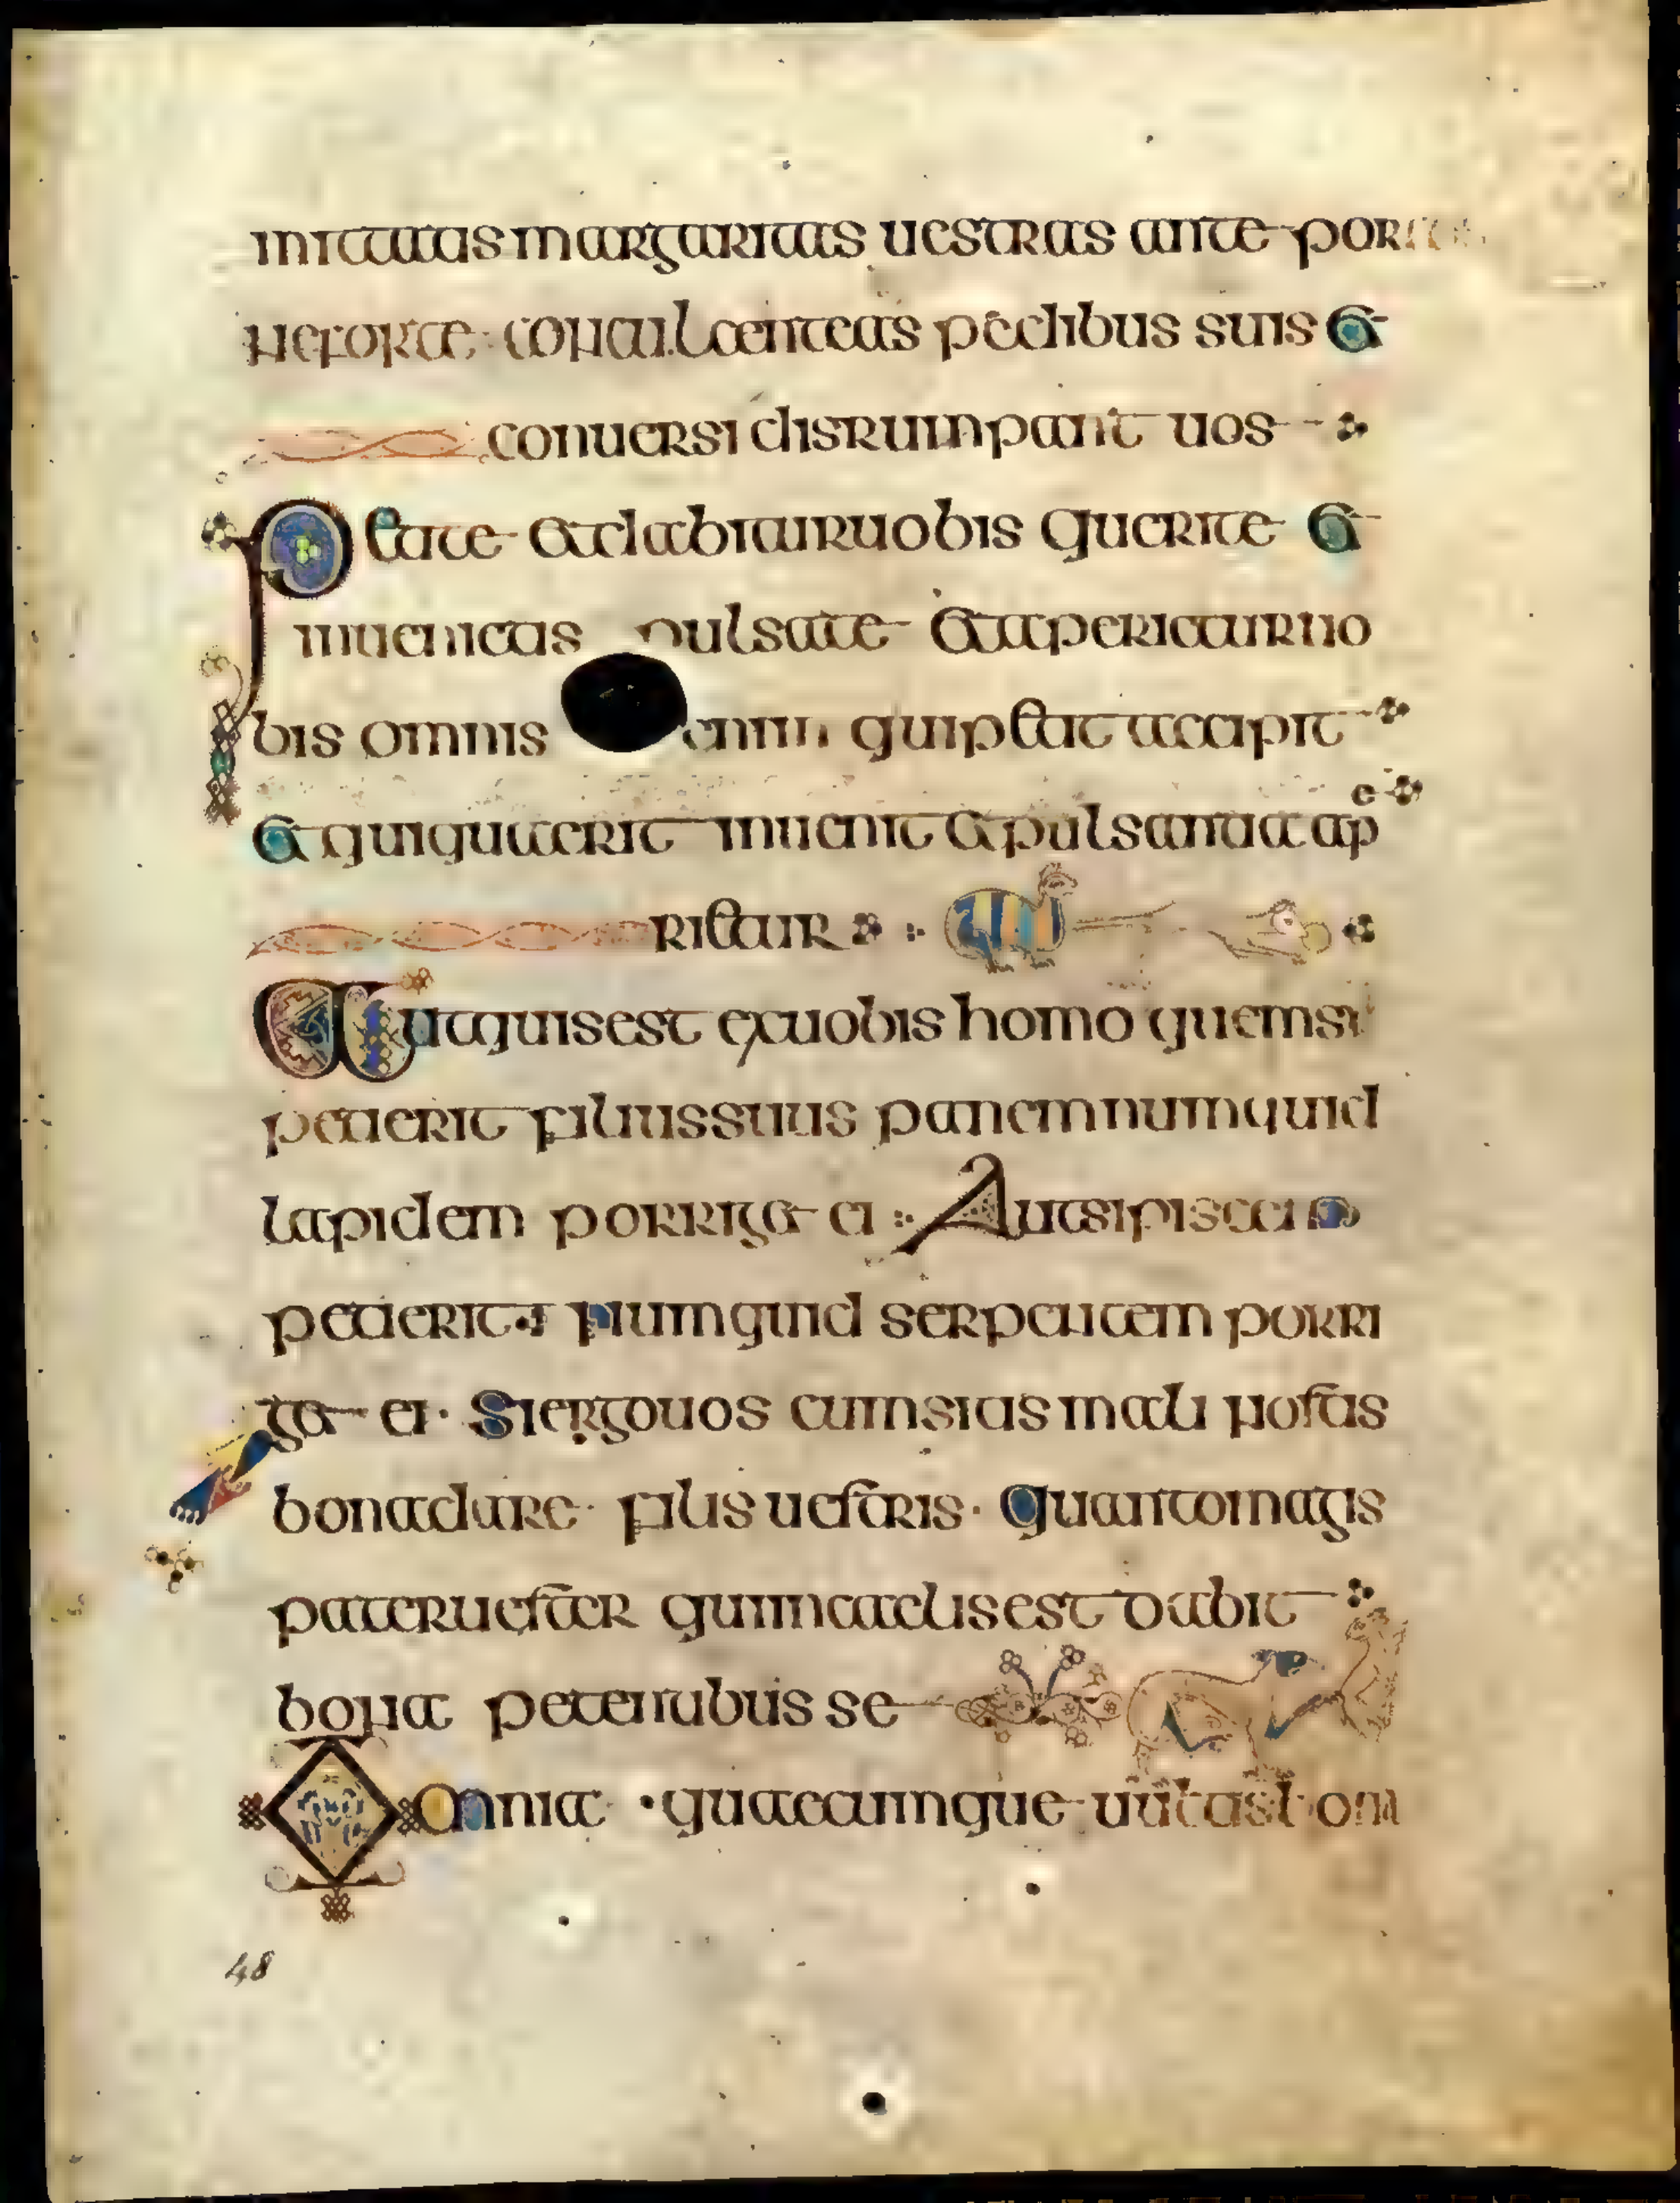 mittatis margaritas uestras ante por
ne forte conculcent eas pedibus suis et
conuersi disrumpant uos
Petate et dabitur uobis querite et
inuenietis pulsate et aperietur uo
bis omnis enim qui petit accipit
et qui quaerit inuenit et pulsanti ap
e
rietur
Aut quis est ex uobis homo quem si
petierit filius suus panem numquid
lapidem porriget ei Aut si piscem
petierit numquid serpentem porri
get ei · Si ergo uos cum sitis mali nostis
bona dare · filis uestris · Quanto magis
pater uester qui in caelis est dabit
bona petentibus se
Omnia · quaecumque uultis
48